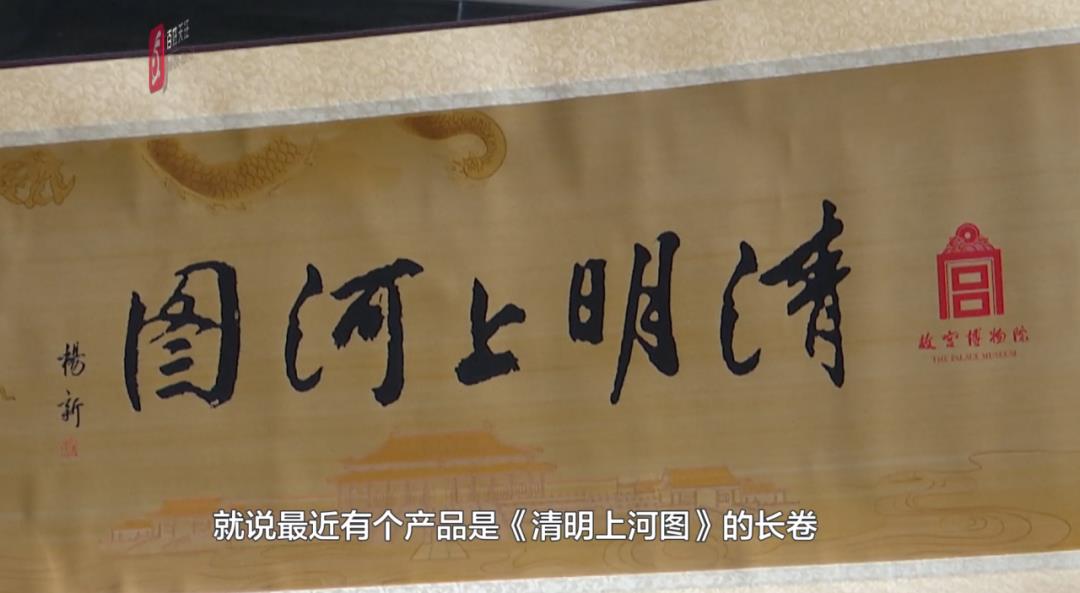 百姓关注
清明上河图
故宫博物院
THE PALACE MUSEUM
楊新
就说最近有个产品是《清明上河图》的长卷